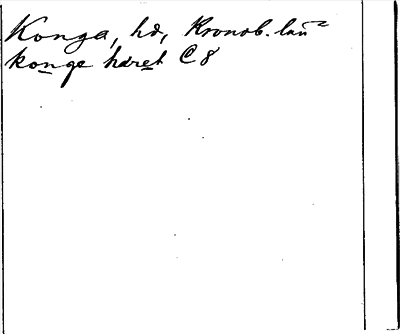 Konga, hd, Kronob. län
konge häret C 8